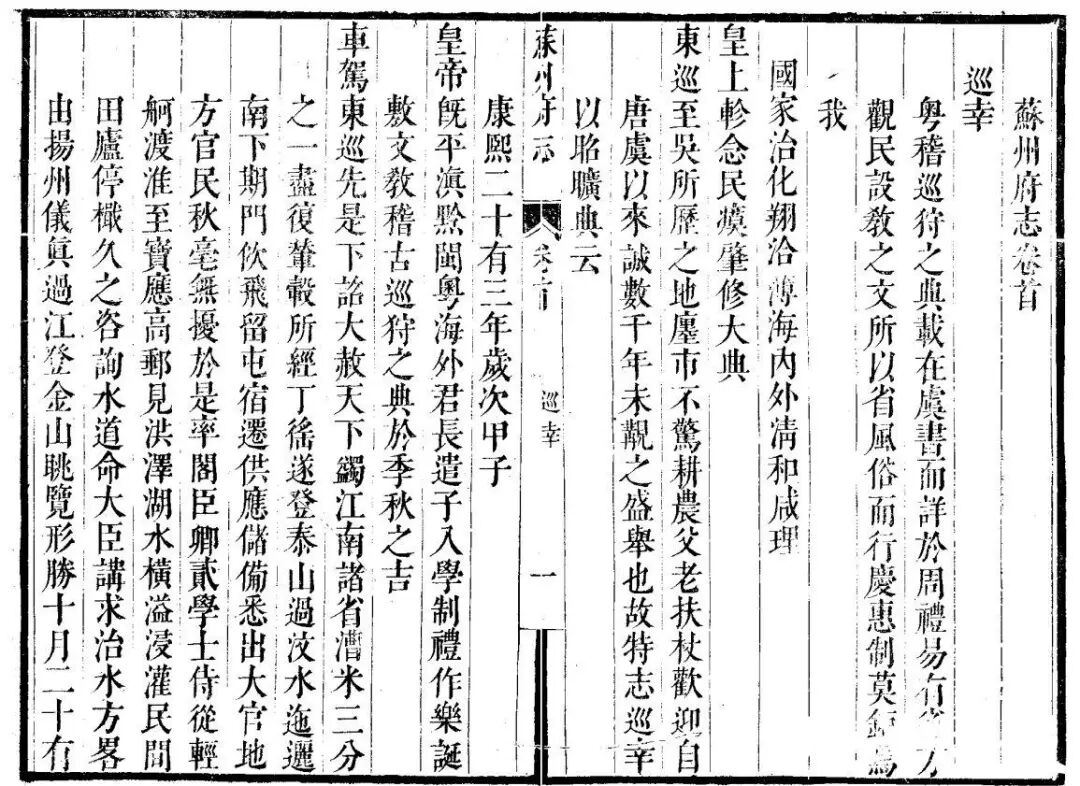 蘇州府志卷首
巡幸
粤稽巡狩之典載在虞書而詳於周禮易有省方
觀民設敎之文所以省風俗而行慶惠制莫鉅焉
我
國家治化翔洽薄海內外淸和咸理
皇上軫念民瘼肇修大典
東巡至吳所歷之地廛市不驚耕農父老扶杖歡迎自
唐虞以來誠數千年未覯之盛舉也故特志巡幸
以昭曠典云
蘇州府志
卷首
巡幸
一
康熙二十有三年歲次甲子
皇帝旣平滇黔閩粤海外君長遣子入學制禮作樂誕
敷文敎稽古巡狩之典於季秋之吉
車駕東巡先是下詔大赦天下蠲江南諸省漕米三分
之一盡復輦轂所經丁徭遂登泰山過汶水迤邐
南下期門佽飛留屯宿遷供應儲偹悉出大官地
方官民秋毫無擾於是率閣臣卿貳學士侍從輕
舸渡淮至寶應高郵見洪澤湖水橫溢浸灌民間
田廬停檝久之咨詢水道命大臣講求治水方畧
由揚州儀眞過江登金山眺覽形勝十月二十有